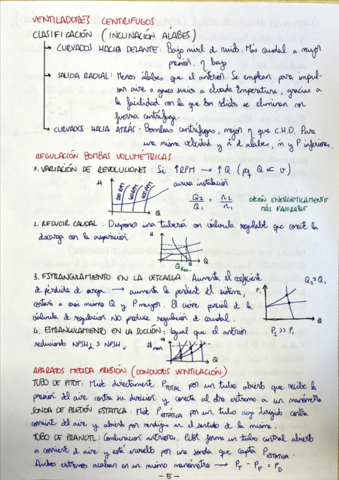 VENTILADORES CENTRÍFUGOS
CLASIFICACIÓN (INCLINACIÓN ÁLABES)
CURVADOS HACIA DELANTE: Bajo nivel de ruido. Mas caudal a mayor
presion, η bajo
SALIDA RADIAL: Menos álabes que el anterior. Se emplean para impul-
sar aire o gases sucios a elevada temperatura, gracias a
la facilidad con la que los sólidos se eliminan con
fuerza centrífuga.
CURVADOS HACIA ATRÁS: Bombas centrífugas, mejor η que C.H.D. Para
una misma velocidad y nº de álabes, η y P inferiores.
REGULACIÓN BOMBAS VOLUMÉTRICAS
1. VARIACIÓN DE REVOLUCIONES: Si ↑RPM → ↑Q (pq Q ∝ v)
H curva instalación
Q2/Q1 = n2/n1
OPCIÓN ENERGÉTICAMENTE
MÁS FAVORABLE
Q
2. REDUCIR CAUDAL: Disponemos una tubería con válvula regulable que conecte la
descarga con la aspiración
H
Q
3. ESTRANGULAMIENTO EN LA DESCARGA: Aumenta el coeficiente
de pérdida de carga → aumenta la pendiente del sistema,
Q
4. ESTRANGULAMIENTO EN LA SUCCIÓN: Igual que el anterior
reduciendo
APARATOS MEDIDA PRESIÓN (CONDUCTOS VENTILACIÓN)
TUBO DE PITOT: Mide directamente P TOTAL por un tubo abierto que recibe la
presión del aire contra su dirección y conecta al otro extremo a un manómetro
SONDA DE PRESIÓN ESTÁTICA: Mide P ESTÁTICA por un tubo cerrado
TUBO DE PRANDTL: Combinación anteriores. Pitot forma un tubo central abierto
a corriente de aire y está envuelto por una sonda que capta P ESTÁTICA
Ambos extremos acaban en un mismo manómetro → PT - PE = PD
- 5 -